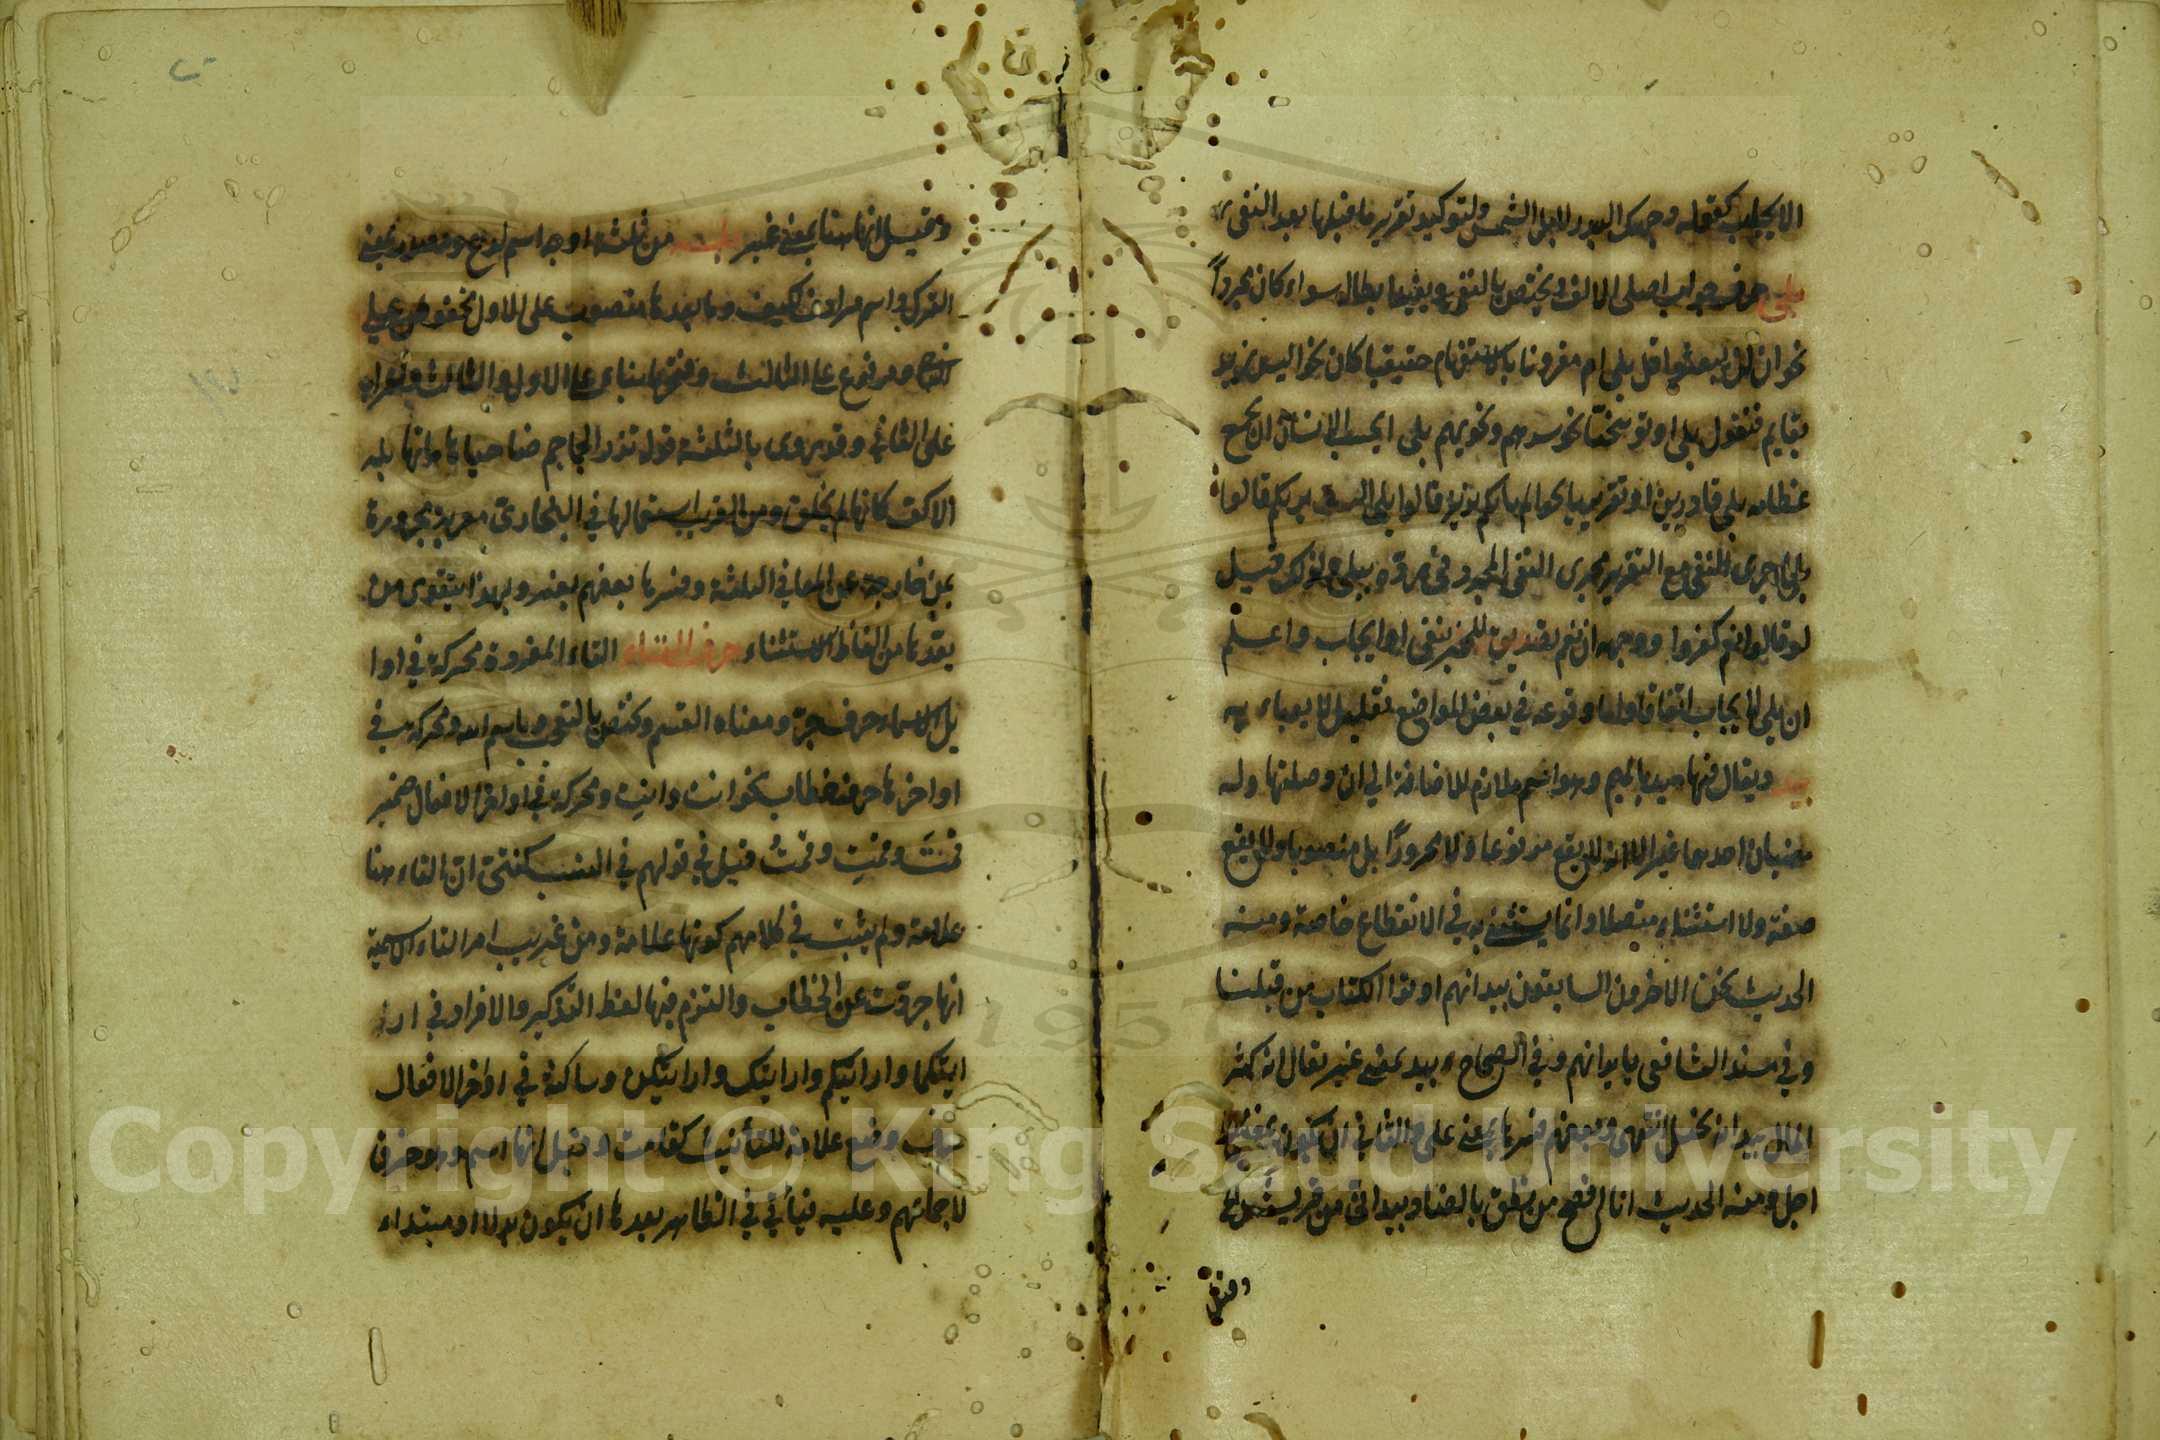 الايجاب كقوله وجهك البدر لا بل الشمس ولتوكيد تقرير ما قبلها بعد النفى
بلى حرف جواب اصلى الالف ويختص بالنفى ويفيد ابطاله سواء كان مجرداً
نحو ان لن يبعثوا قل بلى ام مقرونا بالاستفهام حقيقيا كان نحو اليس زيد
بقايم فتقول بلى او توبيخيّا نحو سرهم ونجويهم بلى ايحسب الانسان ان لن نجمع
عظامه بلى قادرين او تقريريا نحو الم ياتكم نذير قالوا بلى الست بربكم قالوا
بلى اجرى النفى مع التقرير مجرى النفى المجرد في رده ببلى ولذلك قيل
لو قالوا نعم كفروا ووجهه ان نعم تصديق للمخبر بنفى او ايجاب واعلم
ان بلى لايجاب اتفاقا واما وقوعه في بعض المواضع فقليل لا يعباء به
بيد ويقال فيها ميد بالميم وهو اسم ملازم للاضافة الى ان وصلتها وله
معنيان احدهما غير الا انه لا يقع مرفوعا ولا مجروراً بل منصوبا ولا يقع
صفة ولا استثناء متصلا وانما يستثنى به في الانقطاع خاصة ومنه
الحديث نحن الاخرون السابقون بيد انهم اوتوا الكتاب من قبلنا
وفي مسند الشافعى بايد انهم وفي الصحاح بيد بمعنى غير يقال انه كثير
المال بيد انه بخيل انتهى وبعضهم فسرها بمعنى على والثاني ان تكون بمعنى
اجل ومنه الحديث انا افصح من نطق بالضاد بيد انى من قريش
وقيل
وقيل انها هنا بمعنى غير بله من ثلثة اوجه اسم لدع ومصدر بمعنى
الترك واسم مرادف لكيف وما بعدها منصوب على الاول مخفوض على
الثاني ومرفوع على الثالث وفتحها بناء على الاول والثالث واعراب
على الثاني وقد روى بالثلثة قوله تذر الجماجم ضاحيا هاماتها بله
الاكف كانها لم تخلق ومن الغريب استعمالها في البخارى معربة مجرورة
بمن خارجة عن المعاني الثلثة وفسرها بعضهم بغير وبهذا يتقوى من
يعدها من الفاظ الاستثناء حرف التاء التاء المفردة محركة في اوا
يل الاسماء حرف جر ومعناه القسم وتختص بالتعجب وباسم الله ومحركة في
اواخرها حرف خطاب نحو انت وانتِ ومحركة في اواخر الافعال ضمير
قمتَ وقمتِ وقمتُ قيل في قولهم في النسب كنتى ان التاء هنا
علامة ولم يثبت في كلامهم كونها علامة ومن غريب امر التاء الاسمية
انها جردت عن الخطاب والتزم فيها لفظ التذكير والافراد في ارا
ايتكما وارايتكم وارايتك وارايتكن وساكنة في اواخر الافعال
حرف وضع علامة للتأنيث كقامت وقيل انها اسم وهو خرق
لاجماعهم وعليه فيأتي في الظاهر بعدها ان يكون بدلا او مبتداء
Copyright © King Saud University
1957